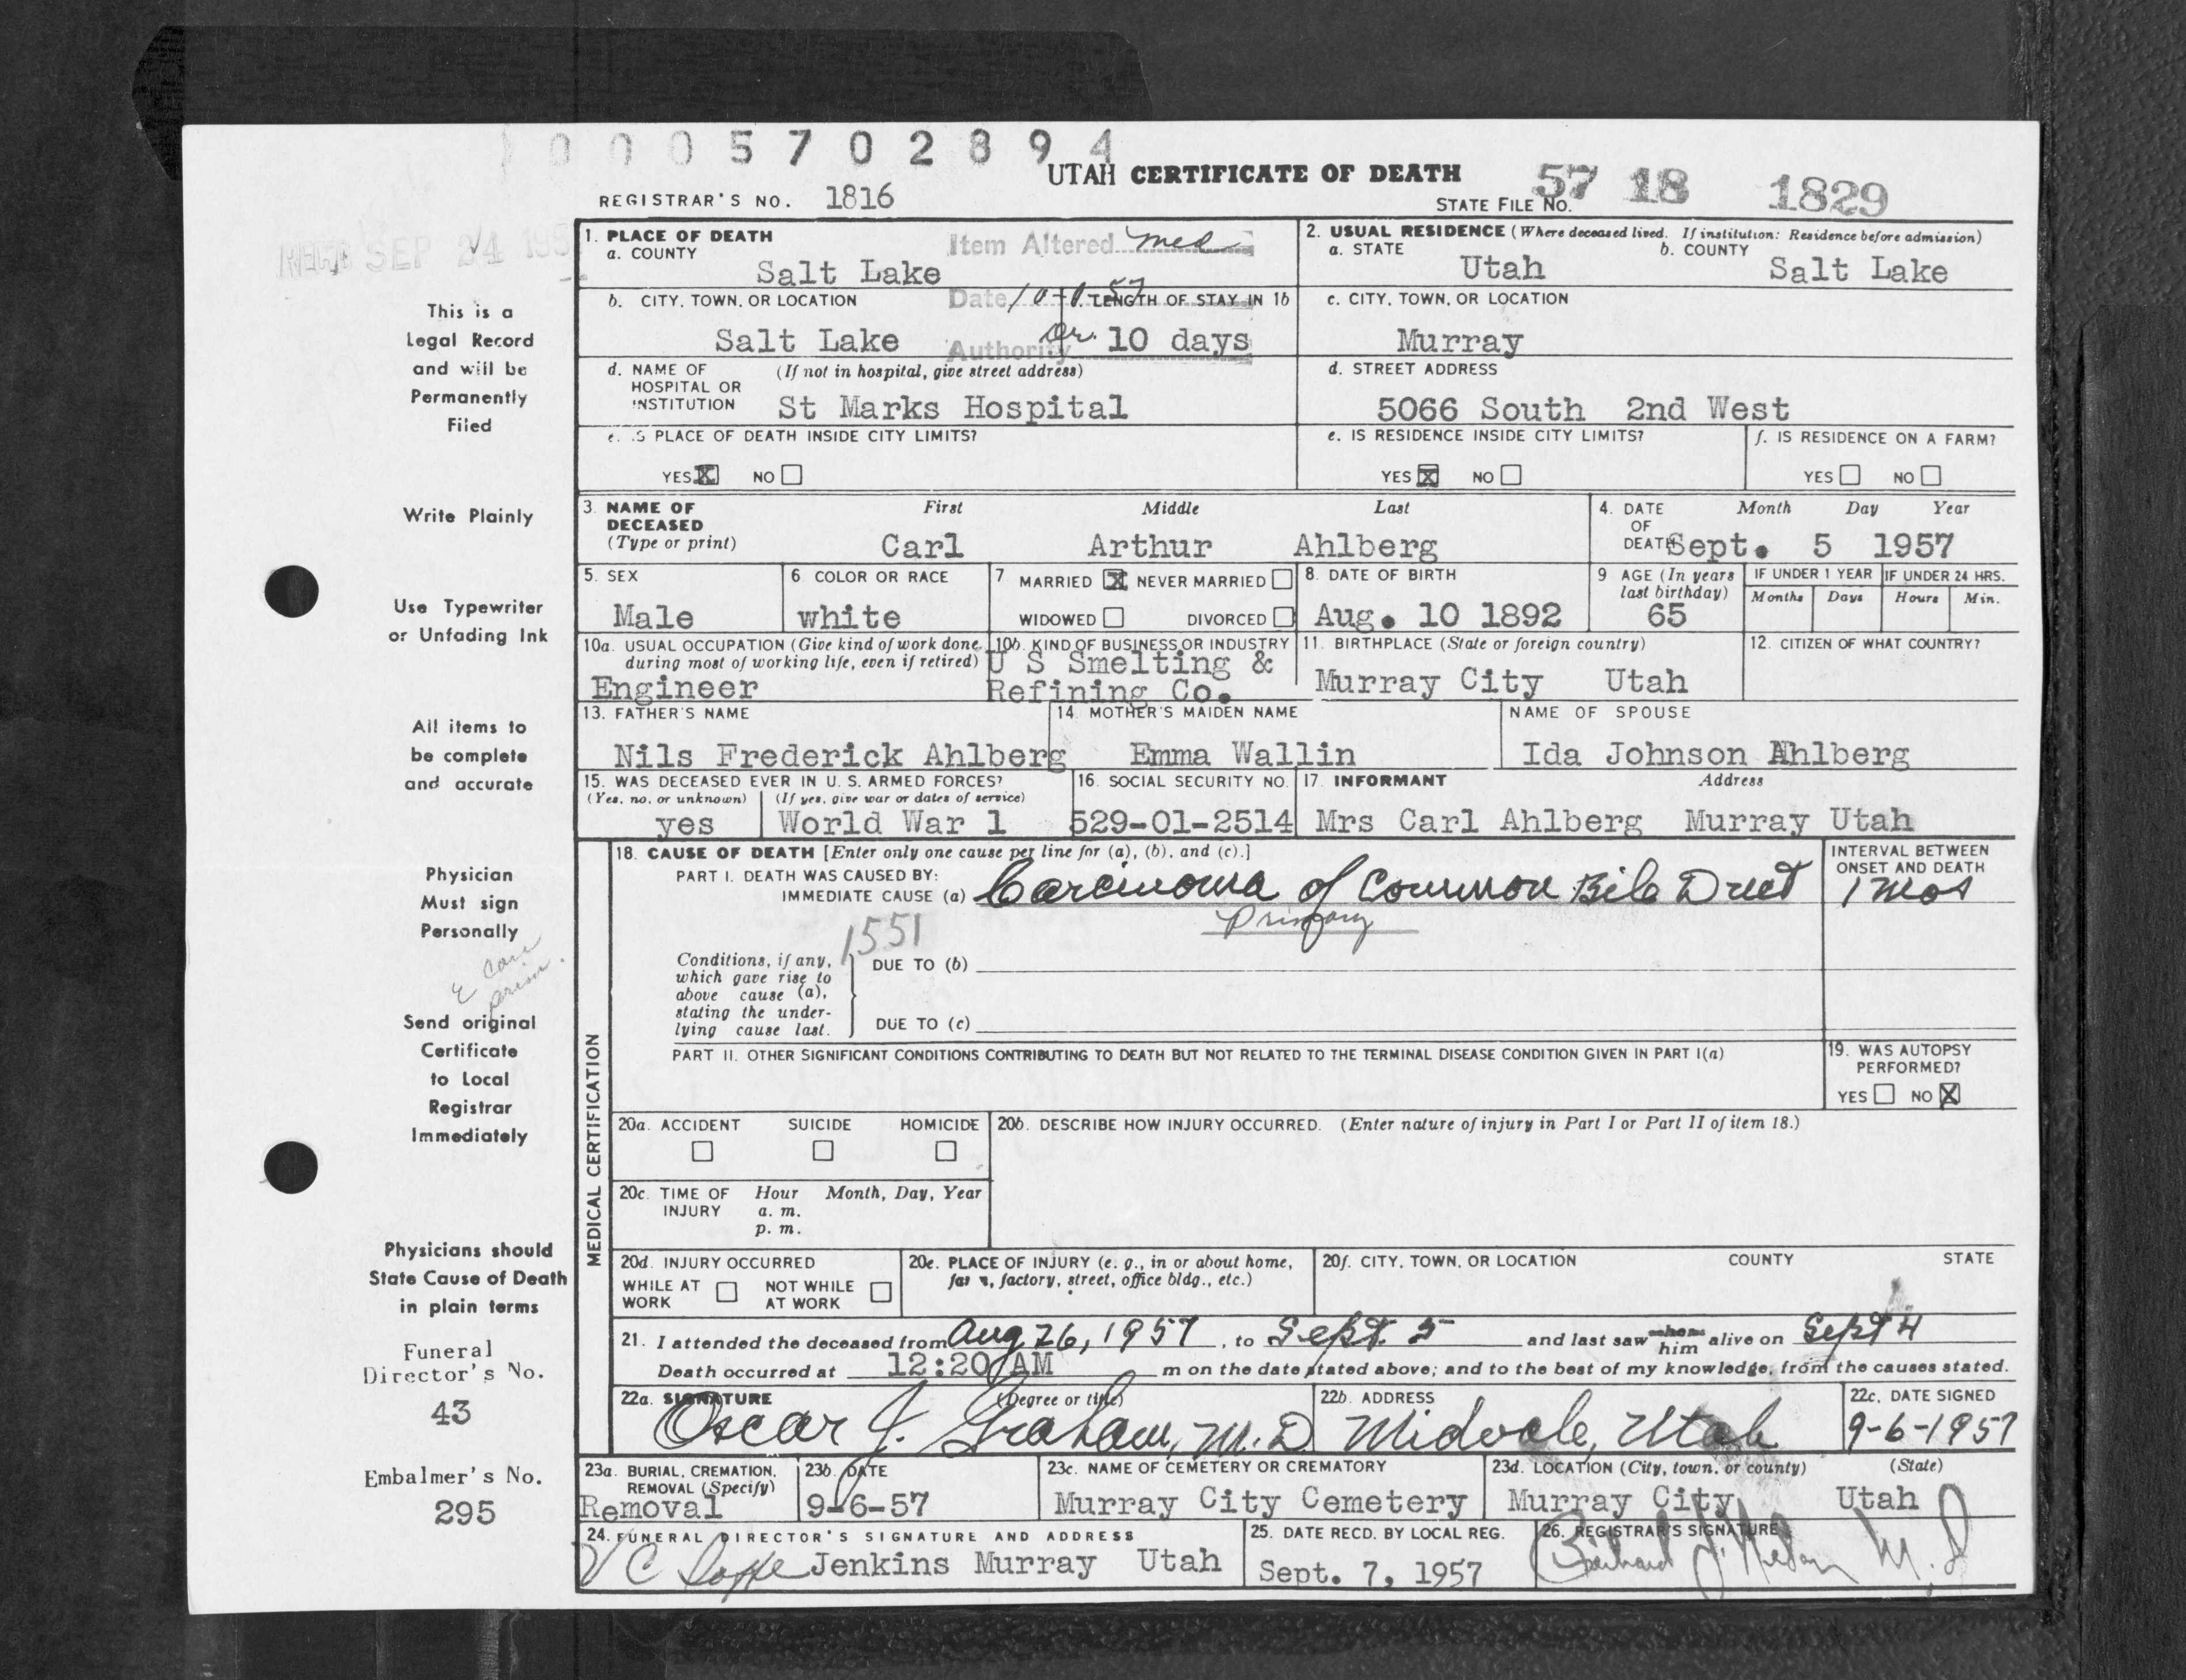 0 0 0 5 7 0 2 8 9 4
UTAH CERTIFICATE OF DEATH
REGISTRAR'S NO. 1816
STATE FILE NO. 57 18 1829
SEP 24 195
This is a
Legal Record
and will be
Permanently
Filed
Write Plainly
Use Typewriter
or Unfading Ink
All items to
be complete
and accurate
Physician
Must sign
Personally
Send original
Certificate
to Local
Registrar
Immediately
Physicians should
State Cause of Death
in plain terms
Funeral
Director's No.
43
Embalmer's No.
295
1. PLACE OF DEATH
a. COUNTY
Salt Lake
Item Altered med
Date 10-1-57
Authority Dr.
b. CITY, TOWN, OR LOCATION
Salt Lake
LENGTH OF STAY IN 1b
10 days
d. NAME OF HOSPITAL OR INSTITUTION (If not in hospital, give street address)
St Marks Hospital
e. IS PLACE OF DEATH INSIDE CITY LIMITS?
YES X NO
2. USUAL RESIDENCE (Where deceased lived. If institution: Residence before admission)
a. STATE Utah
b. COUNTY Salt Lake
c. CITY, TOWN, OR LOCATION
Murray
d. STREET ADDRESS
5066 South 2nd West
e. IS RESIDENCE INSIDE CITY LIMITS?
YES X NO
f. IS RESIDENCE ON A FARM?
YES NO
3. NAME OF DECEASED (Type or print)
First Middle Last
Carl Arthur Ahlberg
4. DATE OF DEATH
Month Day Year
Sept. 5 1957
5. SEX
Male
6 COLOR OR RACE
white
7 MARRIED X NEVER MARRIED
WIDOWED DIVORCED
8. DATE OF BIRTH
Aug. 10 1892
9 AGE (In years last birthday)
65
IF UNDER 1 YEAR
Months Days
IF UNDER 24 HRS.
Hours Min.
10a. USUAL OCCUPATION (Give kind of work done during most of working life, even if retired)
Engineer
10b. KIND OF BUSINESS OR INDUSTRY
U S Smelting &
Refining Co.
11. BIRTHPLACE (State or foreign country)
Murray City Utah
12. CITIZEN OF WHAT COUNTRY?
13. FATHER'S NAME
Nils Frederick Ahlberg
14. MOTHER'S MAIDEN NAME
Emma Wallin
NAME OF SPOUSE
Ida Johnson Ahlberg
15. WAS DECEASED EVER IN U. S. ARMED FORCES?
(Yes, no, or unknown) (If yes, give war or dates of service)
yes World War 1
16. SOCIAL SECURITY NO.
529-01-2514
17. INFORMANT Address
Mrs Carl Ahlberg Murray Utah
MEDICAL CERTIFICATION
18. CAUSE OF DEATH [Enter only one cause per line for (a), (b), and (c).]
PART I. DEATH WAS CAUSED BY:
IMMEDIATE CAUSE (a) Carcinoma of Common Bile Duct
Primary
1551
INTERVAL BETWEEN ONSET AND DEATH
1 mos
Conditions, if any, which gave rise to above cause (a), stating the underlying cause last.
DUE TO (b)
DUE TO (c)
PART II. OTHER SIGNIFICANT CONDITIONS CONTRIBUTING TO DEATH BUT NOT RELATED TO THE TERMINAL DISEASE CONDITION GIVEN IN PART I(a)
19. WAS AUTOPSY PERFORMED?
YES NO X
20a. ACCIDENT SUICIDE HOMICIDE
20b. DESCRIBE HOW INJURY OCCURRED. (Enter nature of injury in Part I or Part II of item 18.)
20c. TIME OF INJURY Hour Month, Day, Year
a. m.
p. m.
20d. INJURY OCCURRED
WHILE AT WORK NOT WHILE AT WORK
20e. PLACE OF INJURY (e. g., in or about home, farm, factory, street, office bldg., etc.)
20f. CITY, TOWN, OR LOCATION COUNTY STATE
21. I attended the deceased from Aug 26, 1957, to Sept. 5 and last saw her him alive on Sept 4
Death occurred at 12:20 AM m on the date stated above; and to the best of my knowledge, from the causes stated.
22a. SIGNATURE (Degree or title)
Oscar J. Graham, M.D
22b. ADDRESS
Midvale, Utah
22c. DATE SIGNED
9-6-1957
23a. BURIAL, CREMATION, REMOVAL (Specify)
Removal
23b. DATE
9-6-57
23c. NAME OF CEMETERY OR CREMATORY
Murray City Cemetery
23d. LOCATION (City, town, or county) (State)
Murray City Utah
24. FUNERAL DIRECTOR'S SIGNATURE AND ADDRESS
Jenkins Murray Utah
25. DATE RECD. BY LOCAL REG.
Sept. 7, 1957
26. REGISTRAR'S SIGNATURE
M.D